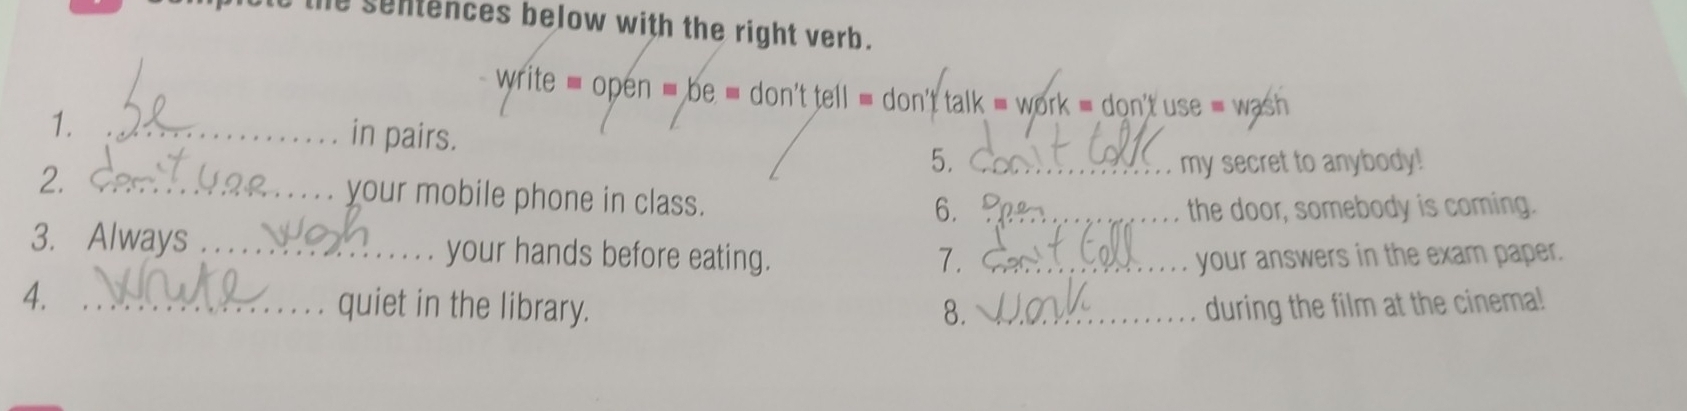 the sentences below with the right verb.
write = open = be = don't tell = don't talk = work = don't use = wash
1. be in pairs.
2. don't use your mobile phone in class.
3. Always wosh your hands before eating.
4. write quiet in the library.
5. don't talk my secret to anybody!
6. open the door, somebody is coming.
7. don't tell your answers in the exam paper.
8. work during the film at the cinema!